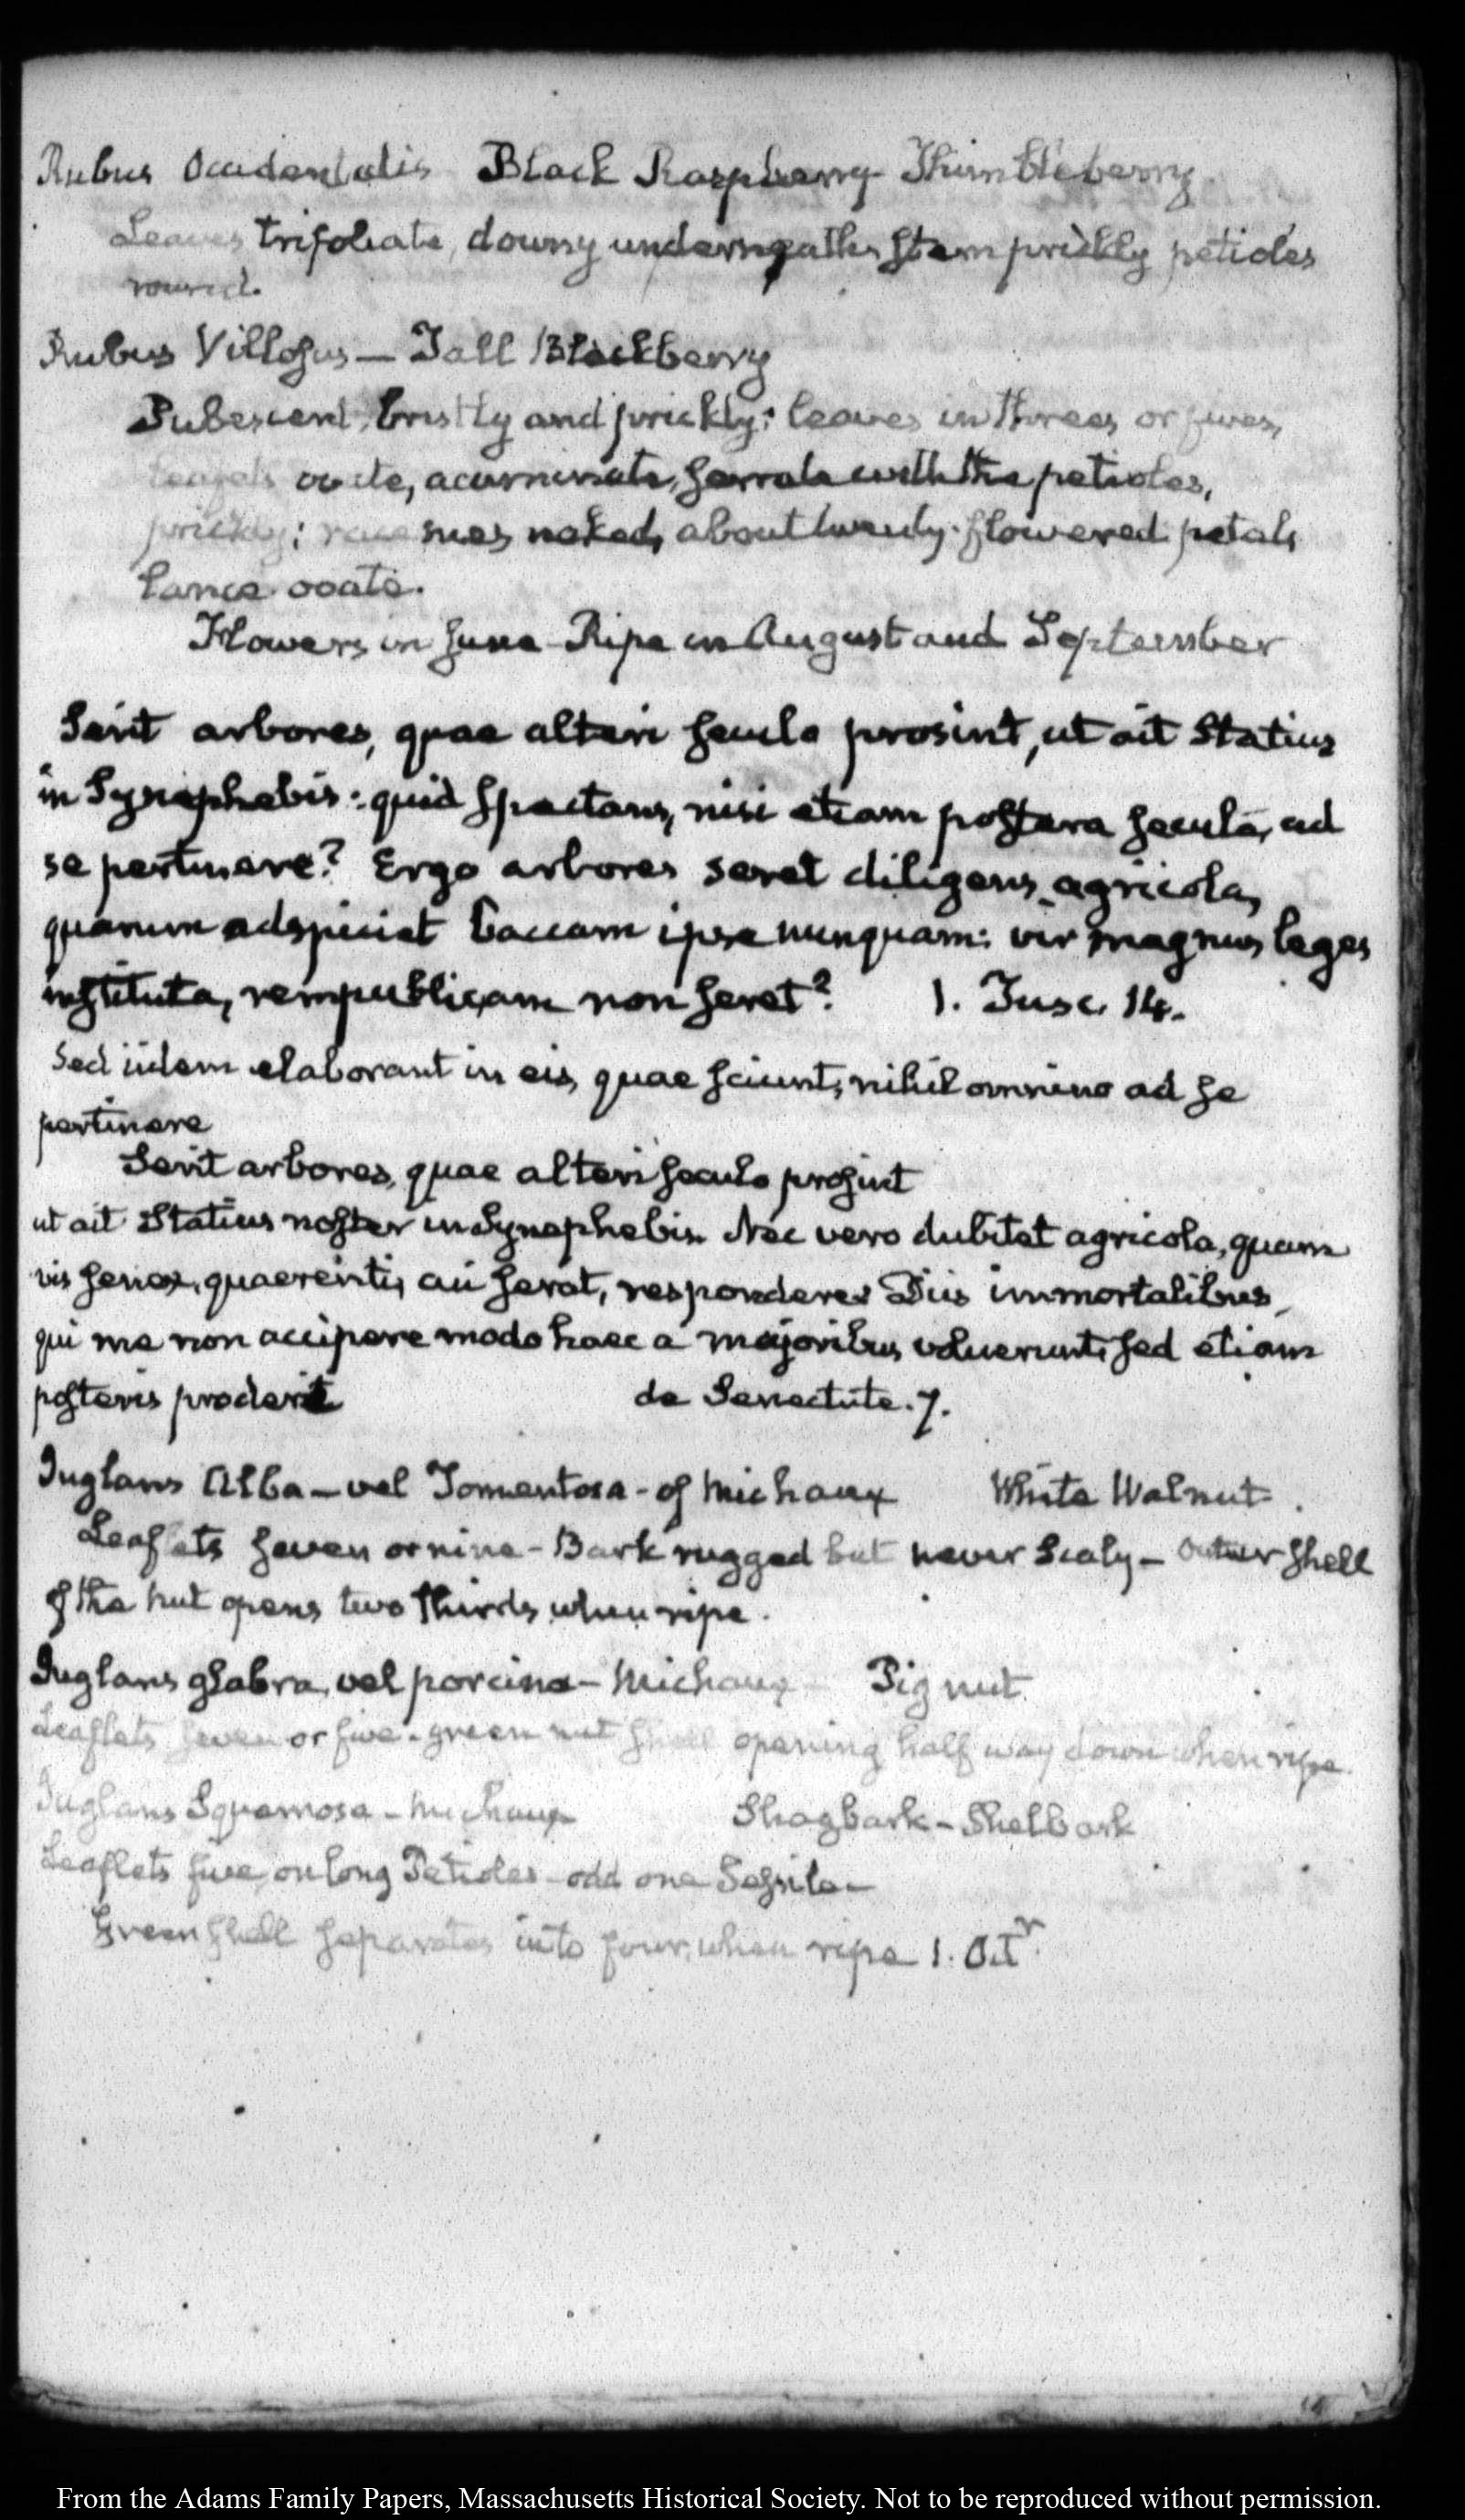 Rubus Occidentalis Black Raspberry Thimbleberry.
Leaves trifoliate, downy underneath, stem prickly petioles
round.
Rubus Villosus — Tall Blackberry
Pubescent, bristly and prickly: leaves in threes or fives,
leafets ovate, acuminate, serrate with the petioles,
prickly: racemes naked, about twenty-flowered petals
lance ovate.
Flowers in June - Ripe in August and September
Serit arbores, quae alteri seculo prosint, ut ait Statius
in Synephebis: quid spectans, nisi etiam postera secula, ad
se pertinere? Ergo arbores seret diligens agricola,
quarum adspiciet baccam ipse nunquam: vir magnus leges
instituta, rempublicam non seret? 1. Tusc. 14.
Sed iidem elaborant in eis, quae sciunt, nihil omnino ad se
pertinere
Serit arbores, quae alteri seculo prosint
ut ait Statius noster in Synephebis. Nec vero dubitet agricola, quam
vis senex, quaerenti, cui serat, respondere: Diis immortalibus,
qui me non accipere modo haec a majoribus voluerunt, sed etiam
posteris proderit de Senectute. 7.
Juglans Alba — vel Tomentosa - of Michaux White Walnut.
Leaflets seven or nine - Bark rugged but never Scaly — Outer shell
of the nut opens two thirds when ripe.
Juglans glabra, vel porcina - Michaux - Pig nut
Leaflets seven or five - green nut shell opening half way down when ripe.
Juglans Squamosa - Michaux Shagbark - Shelbark
Leaflets five, on long Petioles - odd one Sessile —
Green shell separates into four, when ripe 1. Octr.
From the Adams Family Papers, Massachusetts Historical Society. Not to be reproduced without permission.